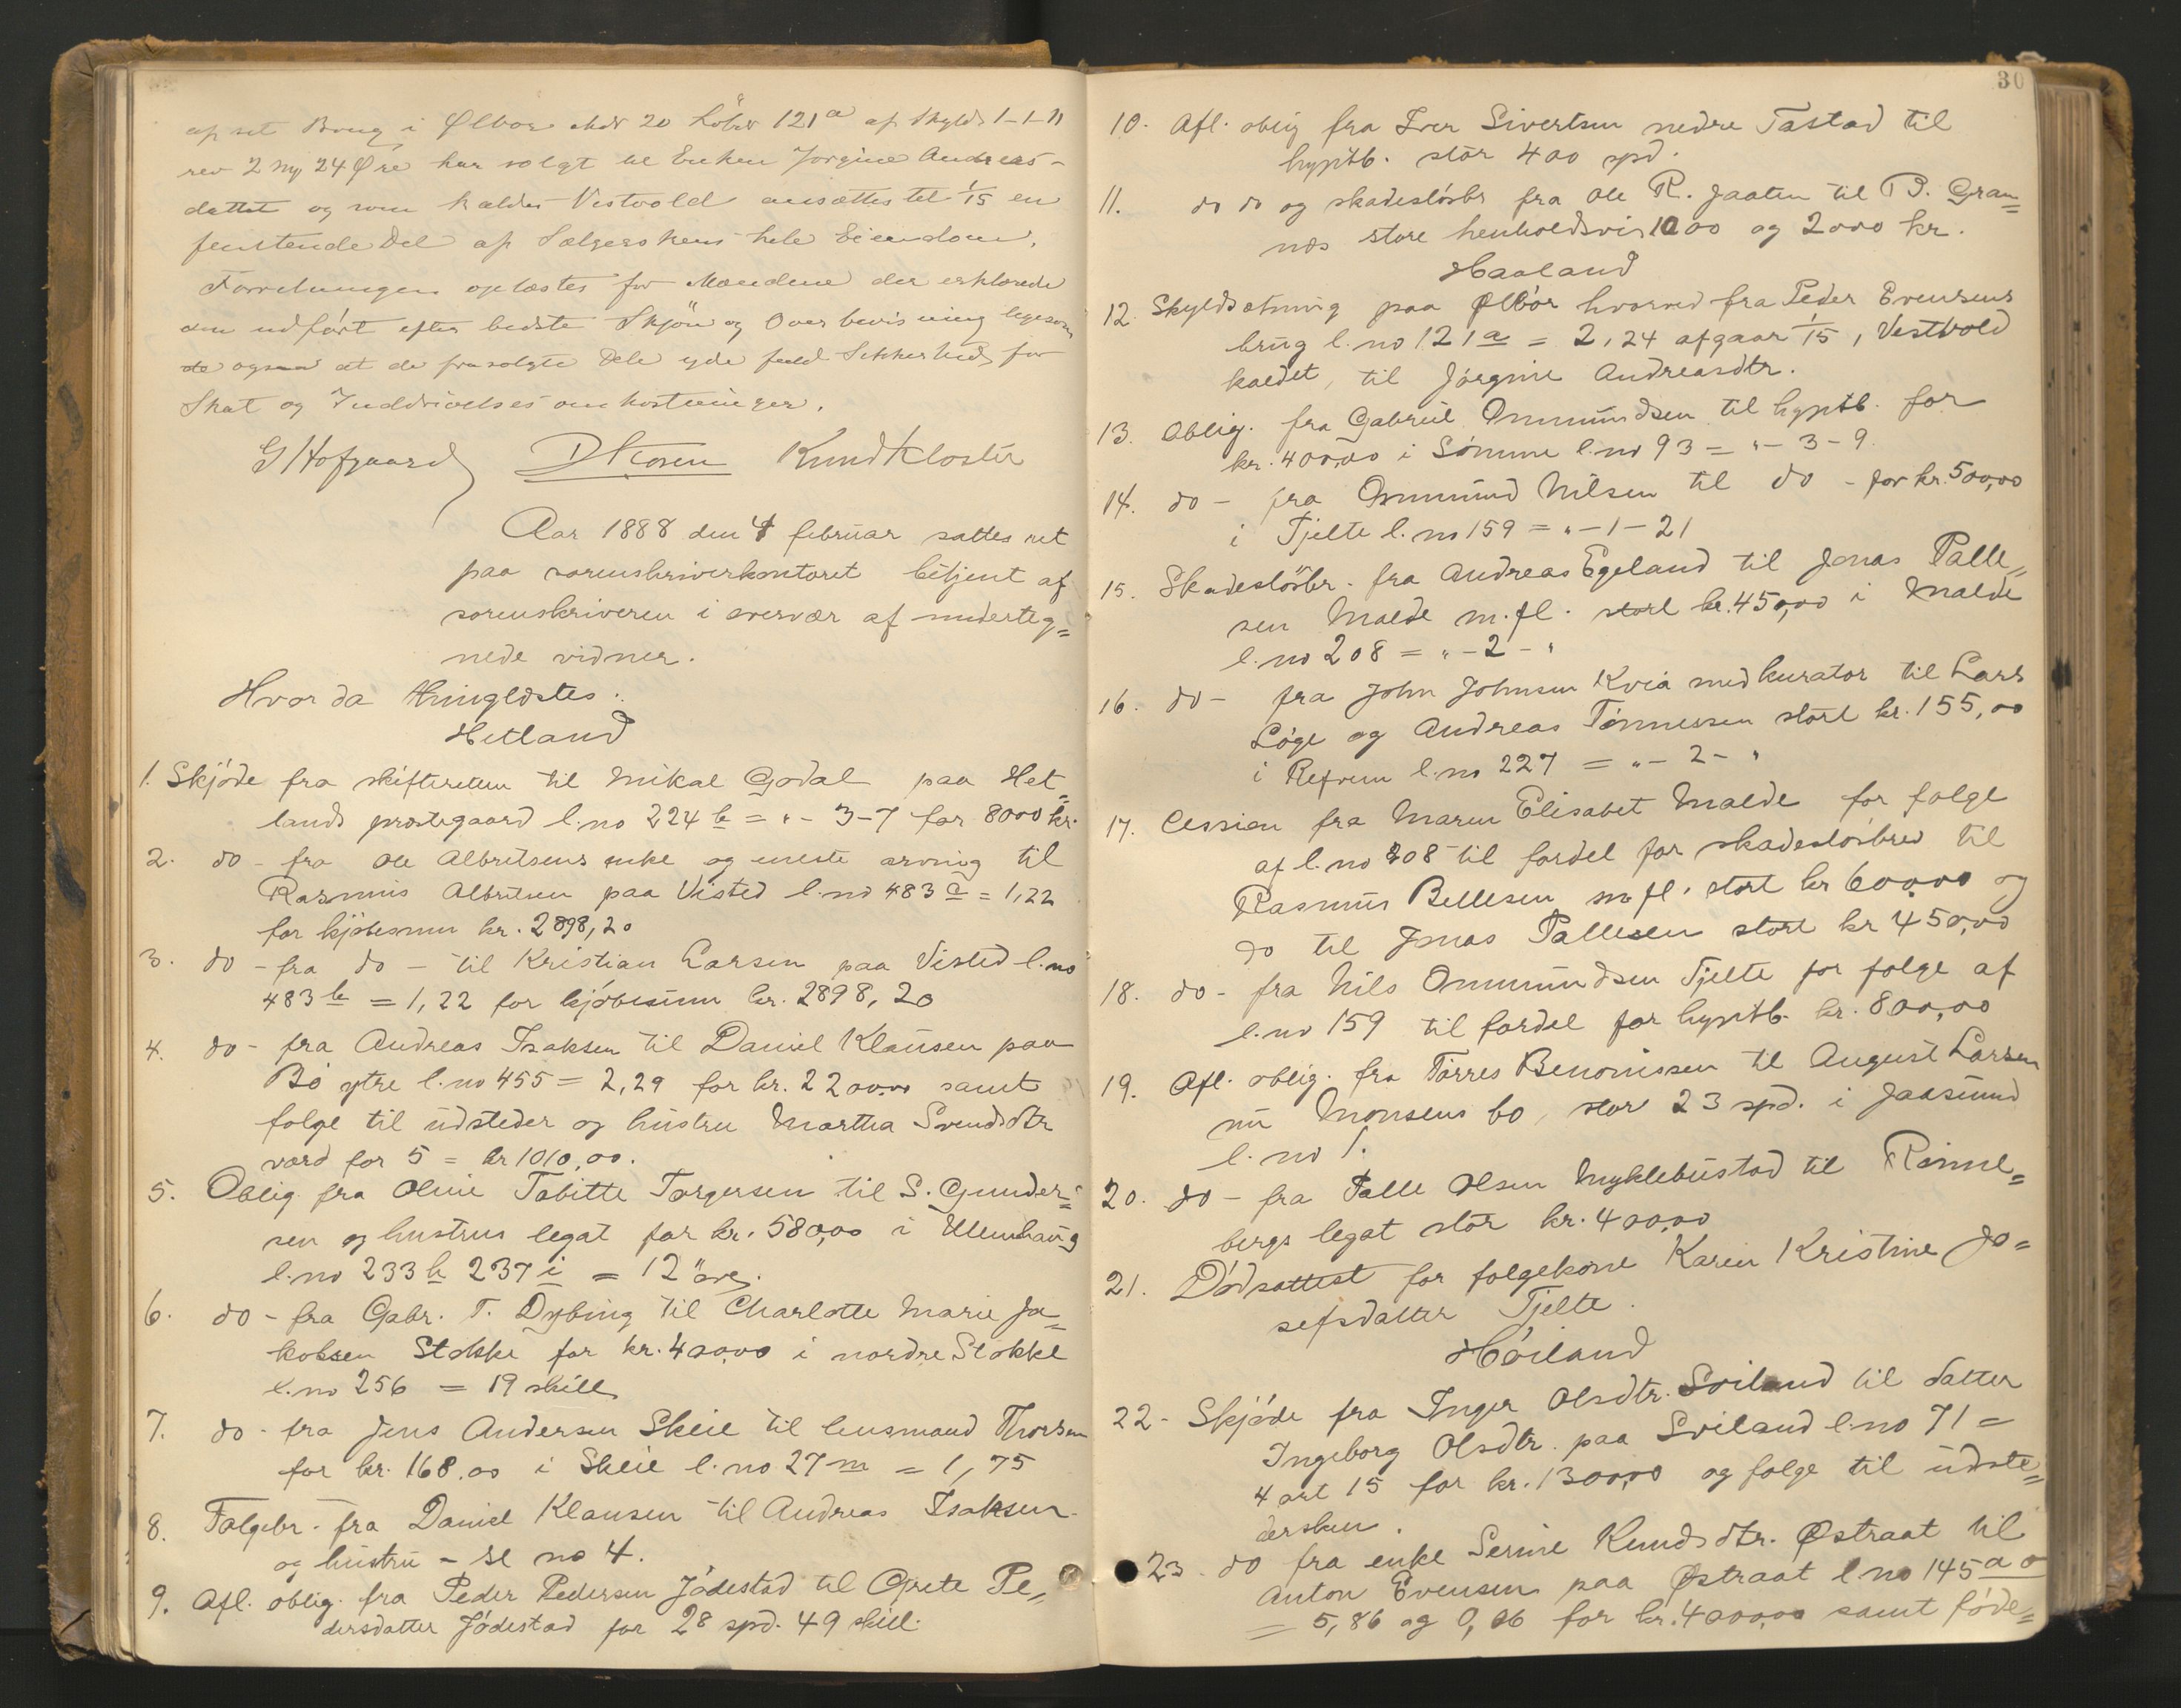 af sit Brug i Ølbør Mdr 20 Løbn 121a af Skyld 1-1-11
rev 2 My 24 Øre har solgt til Enken Jorgine Andreas-
datter og som kaldes Vestvold ansættes til 1/15 en
femtende Del af Sælgerskens hele Eiendom.
Forretningen oplæstes for Mændene der erklærede
den udført efter bedste Skjøn og Overbevisning ligesom
de ogsaa at de frasolgte Dele yde fuld Sikkerhed for
Skat og Inddrivelsesomkostninger.
G Hofgaard Knud Kloster
Aar 1888 den 4 februar sattes ret
paa sorenskriverkontoret betjent af
sorenskriveren i overvær af underteg=
nede vidner.
Hvor da thinglæstes:
Hetland
1. Skjøde fra skifteretten til Mikal Godal paa Het=
lands prestegaard l.no 224 b = "- 3-7 for 8000 kr.
2. do - fra Ole Albretsens enke og eneste arving til
Rasmus Albretsen paa Visted l.no 483 a = 1,22
for kjøbesum kr. 2898,20
3. do - fra do - til Kristian Larsen paa Visted l.no
483 b = 1,22 for kjøbesum kr. 2898,20
4. do - fra Andreas Isaksen til Daniel Klausen paa
Bø ytre l.no 455 = 2,29 for kr. 2200,00 samt
følge til udsteder og hustru Martha Svendsdtr
værd for 5 = kr 1010,00.
5. Oblig fra Oline Tobitte Torgersen til S. Gunder=
sen og hustrus legat for kr. 580,00 i Ullenhaug
l.no 233 h 237 i = 12 øre.
6. do - fra Gabr. T. Dybing til Charlotte Marie Ja=
kobsen Stokke for kr. 400,00 i nordre Stokke
l.no 256 = 19 skill.
7. do - fra Jens Andersen Skeie til lensmand Thorsen
for kr. 168,00 i Skeie l.no 27 m = 1,75
8. Følgebr. fra Daniel Klausen til Andreas Isaksen
og hustru - se no 4.
9. Afl. oblig. fra Peder Pedersen Jødestad til Grete Pe=
dersdatter Jødestad for 28 spd. 49 skill.
30
10. Afl. oblig fra Iver Sivertsen nedre Tastad til
hyptb. stor 400 spd.
11. do do og skadesløsbr fra Ole R. Jaaten til B. Gran=
næs store henholdsvis 1000 og 2000 kr.
Haaland
12. Skyldsætning paa Ølbør hvorved fra Peder Evensens
brug l.no 121 a = 2,24 afgaar 1/15, Vestvold
kaldet, til Jørgine Andreasdtr.
13. Oblig. fra Gabriel Ommundsen til hyptb. for
kr. 400,00 i Sømme l.no 93 = "- 3 - 9.
14. do - fra Ommund Nilsen til do - for kr. 500,00
i Tjelte l.no 159 = "- 1 - 21
15. Skadesløsbr. fra Andreas Egeland til Jonas Palle=
sen Malde m.fl. stort kr. 450,00 i Malde
l.no 208 = "- 2 - "
16. do - fra John Johnsen Kvia med kurator til Lars
Løge og Andreas Tønnessen stort kr. 155,00
i Refsnes l.no 227 = "- 2 - "
17. Cession fra Maren Elisabet Malde for følge
af l.no 208 til fordel for skadesløsbrev til
Rasmus Bellesen m.fl. stort kr 600,00 og
do til Jonas Pallesen stort kr 450,00
18. do - fra Nils Ommundsen Tjelte for følge af
l.no 159 til fordel for hyptb. kr. 800,00
19. Afl. oblig. fra Tørres Benonissen til August Larsen
nu Monsens bo, stor 23 spd. i Jaasund
l.no 1.
20. do - fra Palle Olsen Myklebustad til Rimel=
bergs legat stor kr. 400,00
21. Dødsattest for følgekone Karen Kristine Jo=
sefsdatter Tjelte.
Høiland
22 - Skjøde fra Inger Olsdtr. Sviland til datter
Ingeborg Olsdtr. paa Sviland l.no 71 =
4 ort 15 for kr. 1300,00 og følge til udste=
dersken.
23 - do fra enke Serine Knudsdtr. Østraat til
Anton Evensen paa Østraat l.no 145 a o
= 5,86 og 0,06 for kr. 4000,00 samt føde=